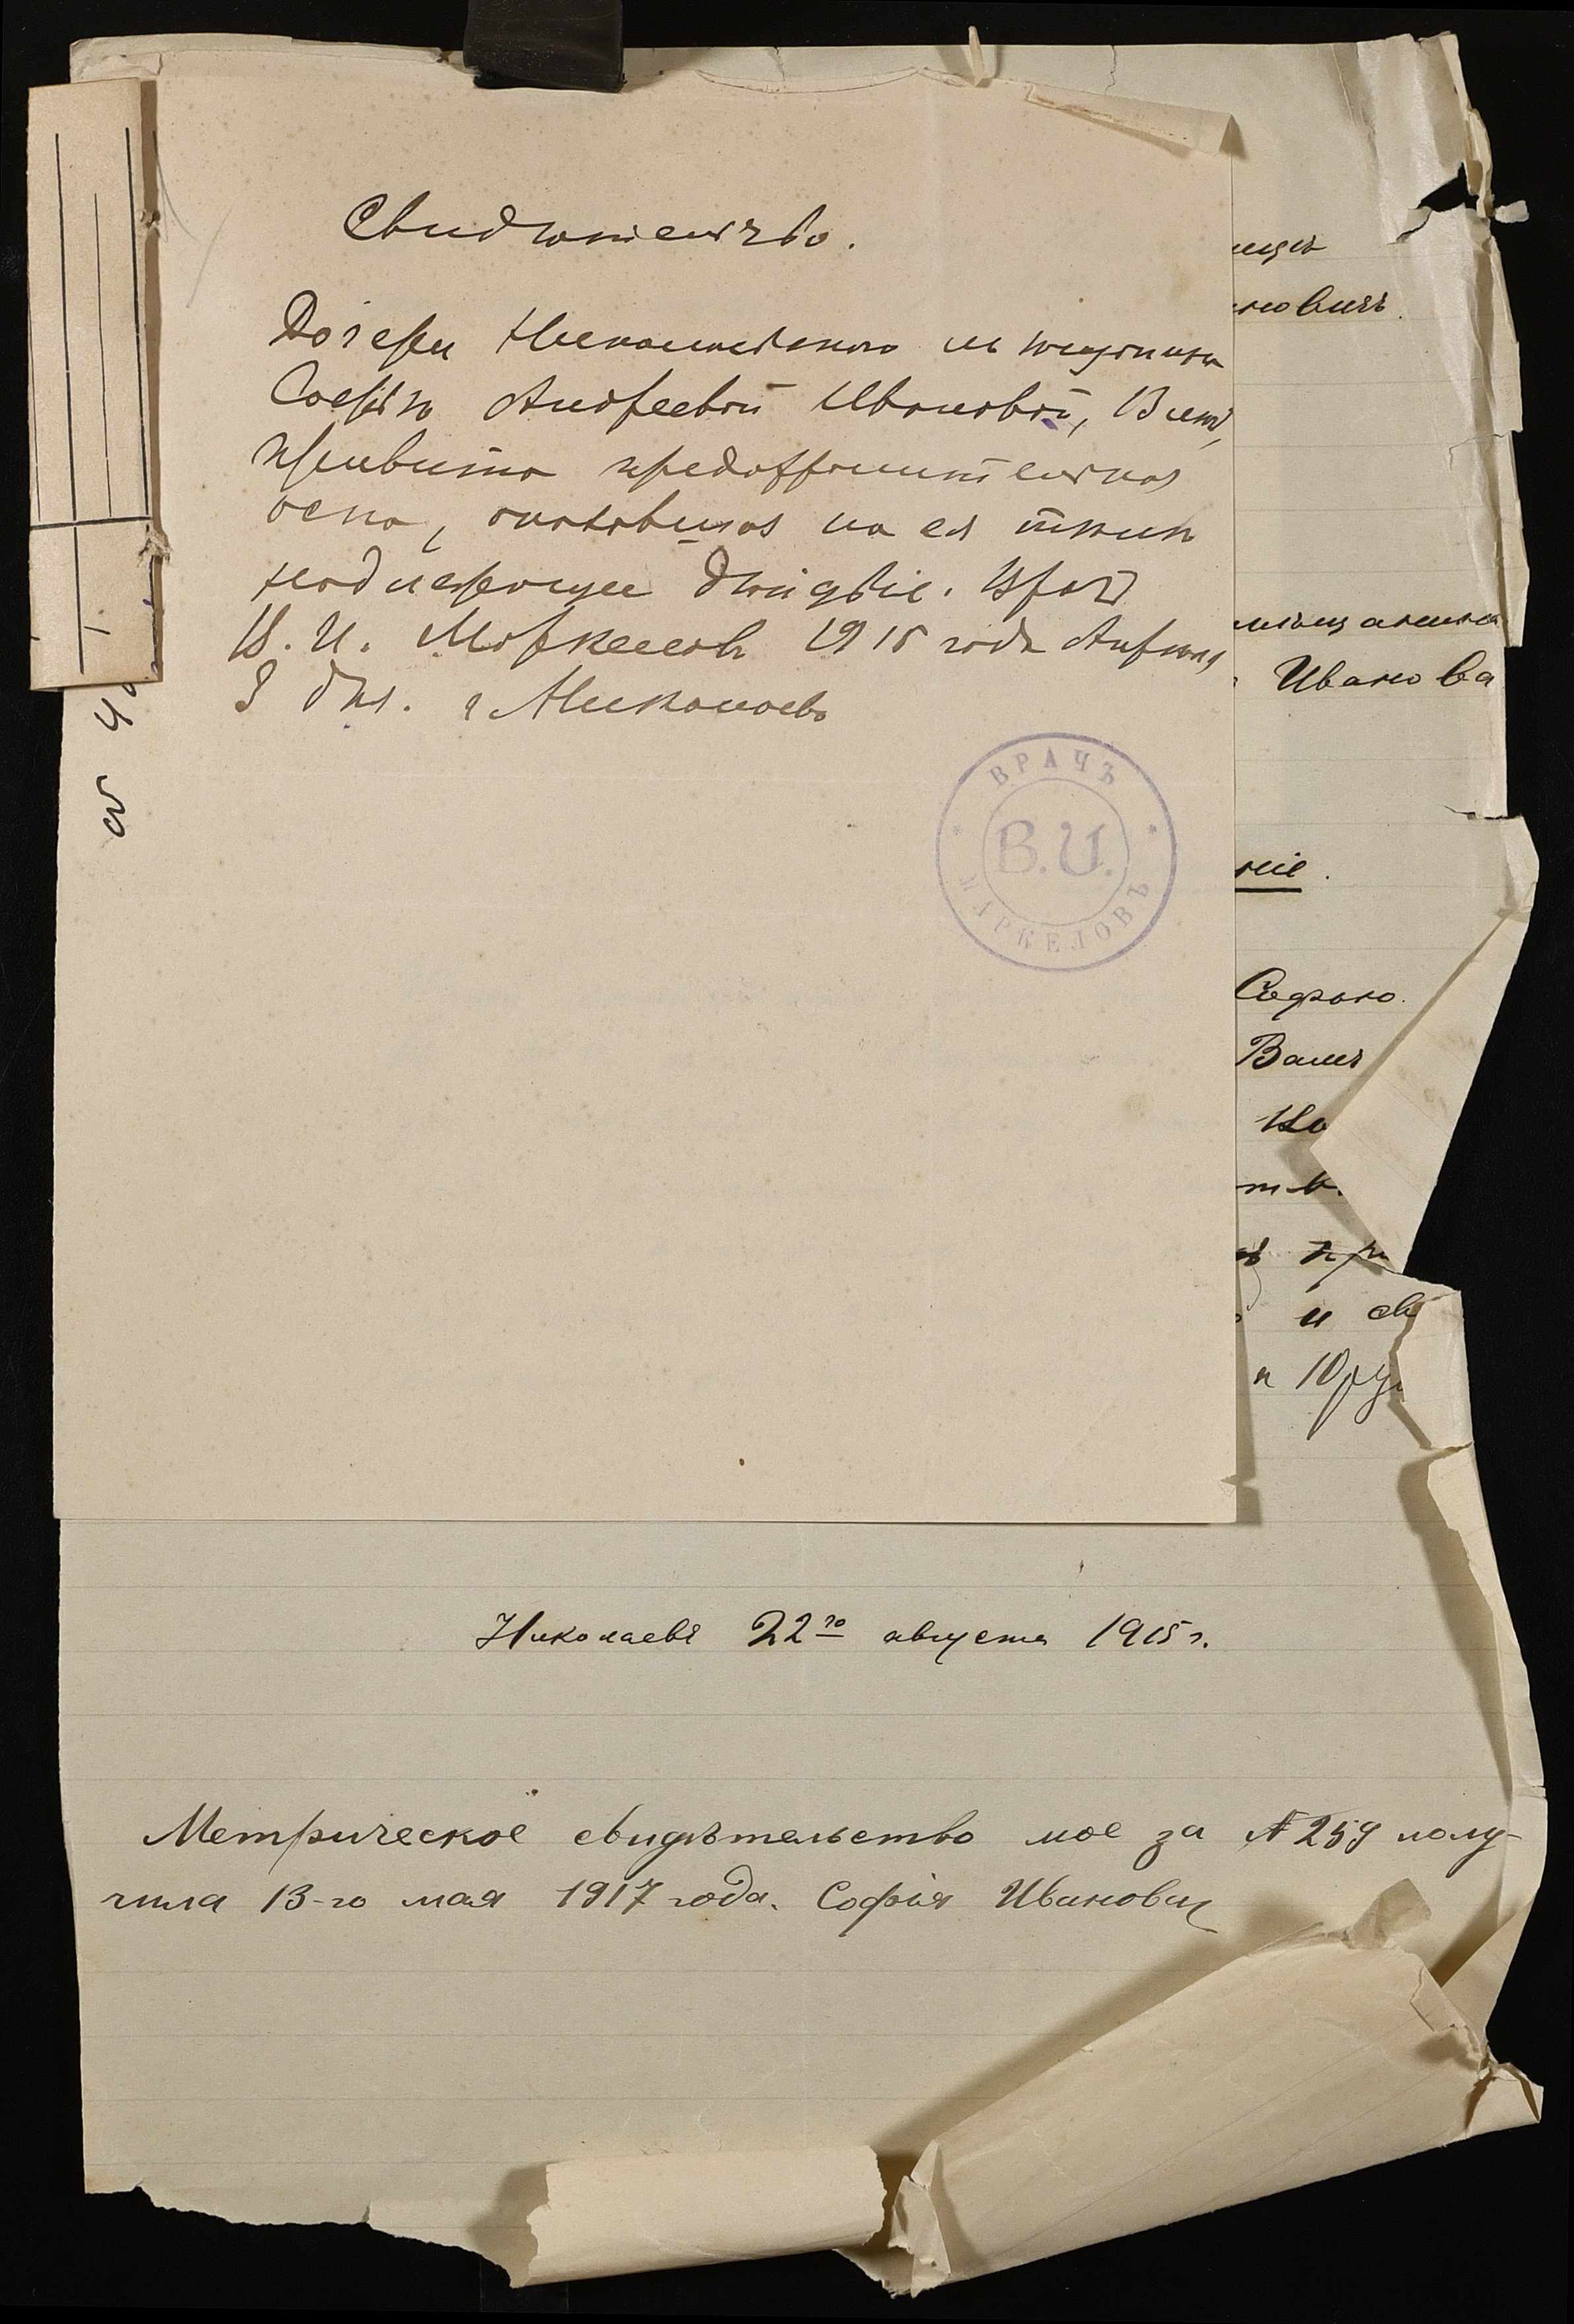 Свидѣтельство.
Дочери Николаевскаго мѣщанина
Софьѣ Андреевой Ивановой, 13 лѣтъ,
привита предохранительная
оспа, оказавшая на ея ткани
надлежащее дѣйствіе. Врачъ
В. И. Маркеловъ 1915 года Апрѣля
8 дня. г Николаевъ
ВРАЧЪ
В.И.
МАРКЕЛОВЪ
новичъ.
мѣщанина
Иванова
ніе.
Софью
Ва
тв.
и св
и 10 ру
Николаевъ 22го августа 1915 г.
Метрическое свидѣтельство мое за № 259 полу-
чила 13-го мая 1917 года. Софія Иванович